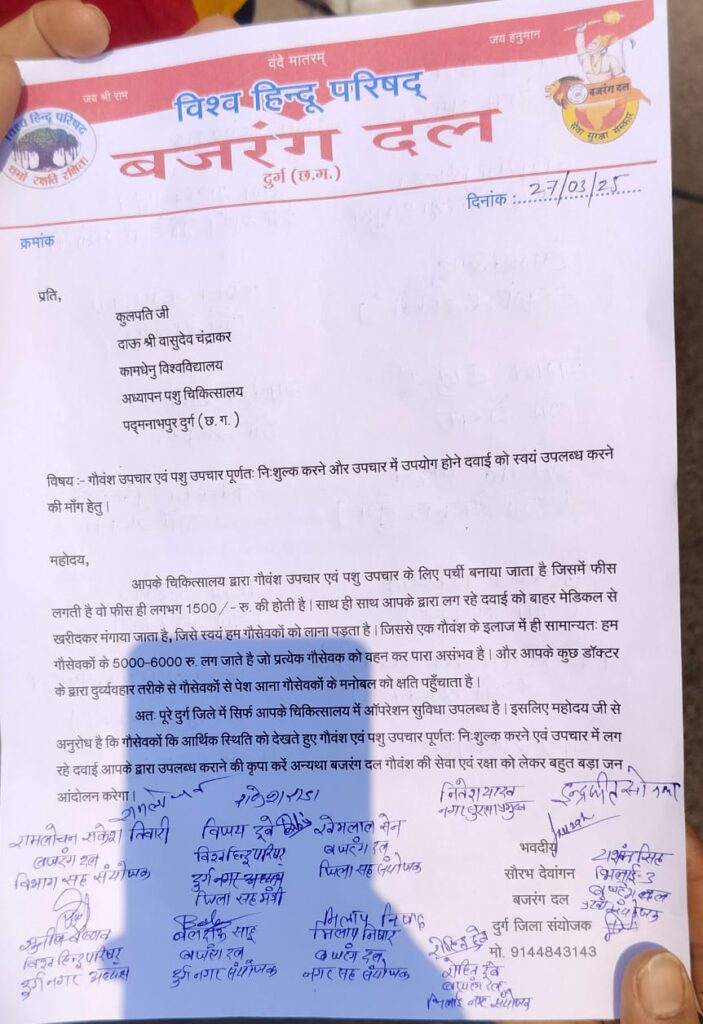 वंदे मातरम्
जय श्री राम
जय हनुमान
विश्व हिन्दू परिषद्
बजरंग दल
दुर्ग (छ.ग.)
विश्व हिन्दू परिषद
धर्मो रक्षति रक्षितः
बजरंग दल
सेवा सुरक्षा संस्कार
दिनांक :.. 27/03/25
क्रमांक
प्रति,
कुलपति जी
दाऊ श्री वासुदेव चंद्राकर
कामधेनु विश्वविद्यालय
अध्यापन पशु चिकित्सालय
पद्मनाभपुर दुर्ग (छ. ग. )
विषय :- गौवंश उपचार एवं पशु उपचार पूर्णतः निःशुल्क करने और उपचार में उपयोग होने दवाई को स्वयं उपलब्ध करने
की माँग हेतु।
महोदय,
आपके चिकित्सालय द्वारा गौवंश उपचार एवं पशु उपचार के लिए पर्ची बनाया जाता है जिसमें फीस
लगती है वो फीस ही लगभग 1500/- रु. की होती है। साथ ही साथ आपके द्वारा लग रहे दवाई को बाहर मेडिकल से
खरीदकर मंगाया जाता है, जिसे स्वयं हम गौसेवकों को लाना पड़ता है। जिससे एक गौवंश के इलाज में ही सामान्यतः हम
गौसेवकों के 5000-6000 रु. लग जाते है जो प्रत्येक गौसेवक को वहन कर पारा असंभव है। और आपके कुछ डॉक्टर
के द्वारा दुर्व्यवहार तरीके से गौसेवकों से पेश आना गौसेवकों के मनोबल को क्षति पहुँचाता है।
अतः पूरे दुर्ग जिले में सिर्फ आपके चिकित्सालय में ऑपरेशन सुविधा उपलब्ध है। इसलिए महोदय जी से
अनुरोध है कि गौसेवकों कि आर्थिक स्थिति को देखते हुए गौवंश एवं पशु उपचार पूर्णतः निःशुल्क करने एवं उपचार में लग
रहे दवाई आपके द्वारा उपलब्ध कराने की कृपा करें अन्यथा बजरंग दल गौवंश की सेवा एवं रक्षा को लेकर बहुत बड़ा जन
आंदोलन करेगा।
रामलोचन राकेश तिवारी
बजरंग दल
विभाग सह संयोजक
विष्णु दुबे
विश्व हिन्दू परिषद
दुर्ग नगर अध्यक्ष
जिला सह मंत्री
खेमलाल सेन
बजरंग दल
जिला सह संयोजक
नितेश यादव
नगर सुरक्षा प्रमुख
भवदीय
सौरभ देवांगन
बजरंग दल
दुर्ग जिला संयोजक
मो. 9144843143
भिलाई-3
बजरंग दल
विश्व हिन्दू परिषद
दुर्ग नगर अध्यक्ष
साहू
बजरंग दल
दुर्ग नगर संयोजक
मिलाप निषाद
मिलाप निषाद
बजरंग दल
नगर सह संयोजक
रोहित दुबे
रोहित दुबे
बजरंग दल
भिलाई नगर संयोजक